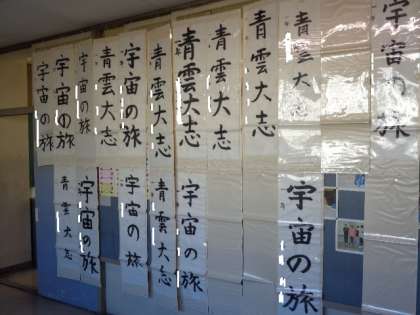 宇宙の旅
宇宙の旅
宇宙の旅
宇宙の旅
青雲大志
青雲大志
青雲大志
青雲大志
青雲大志
宇宙の旅
青雲大志
宇宙の旅
宇宙の旅
青雲大志
宇宙の旅
宇宙の旅